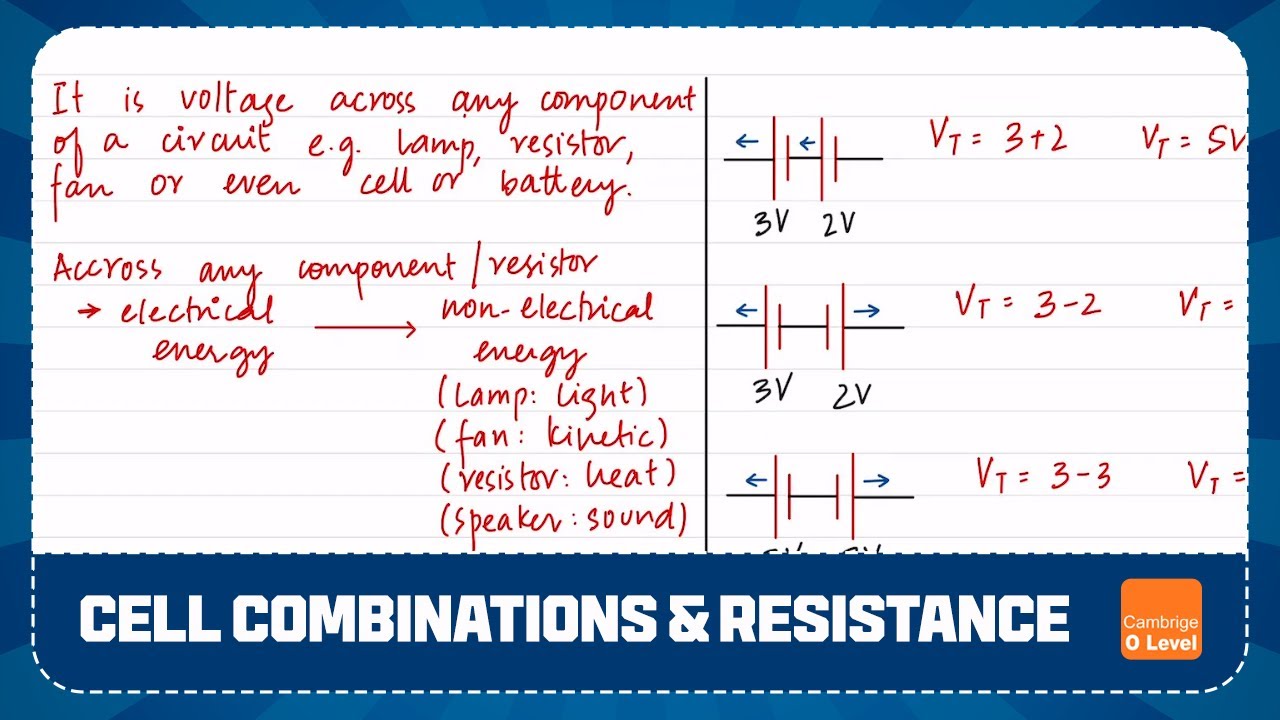 It is voltage across any component
of a circuit e.g. lamp, resistor,
fan or even cell or battery.
Accross any component/resistor
→ electrical → non-electrical
energy energy
(Lamp: light)
(fan: kinetic)
(resistor: heat)
(speaker: sound)
V_T = 3+2 V_T = 5V
3V 2V
V_T = 3-2 V_T =
3V 2V
V_T = 3-3 V_T =
CELL COMBINATIONS & RESISTANCE
Cambrige
O Level